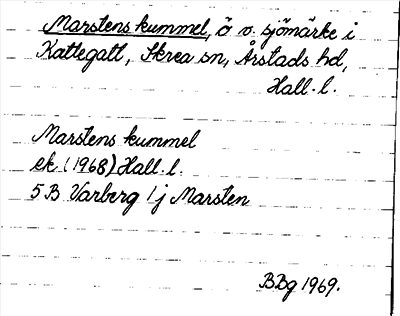 Marstens kummel, ö v. sjömärke i
Kattegatt, Skrea sn, Årstads hd,
Hall. l.
Marstens kummel
ek (1968) Hall. l.
5B Varberg 1j Marsten
BBg 1969.